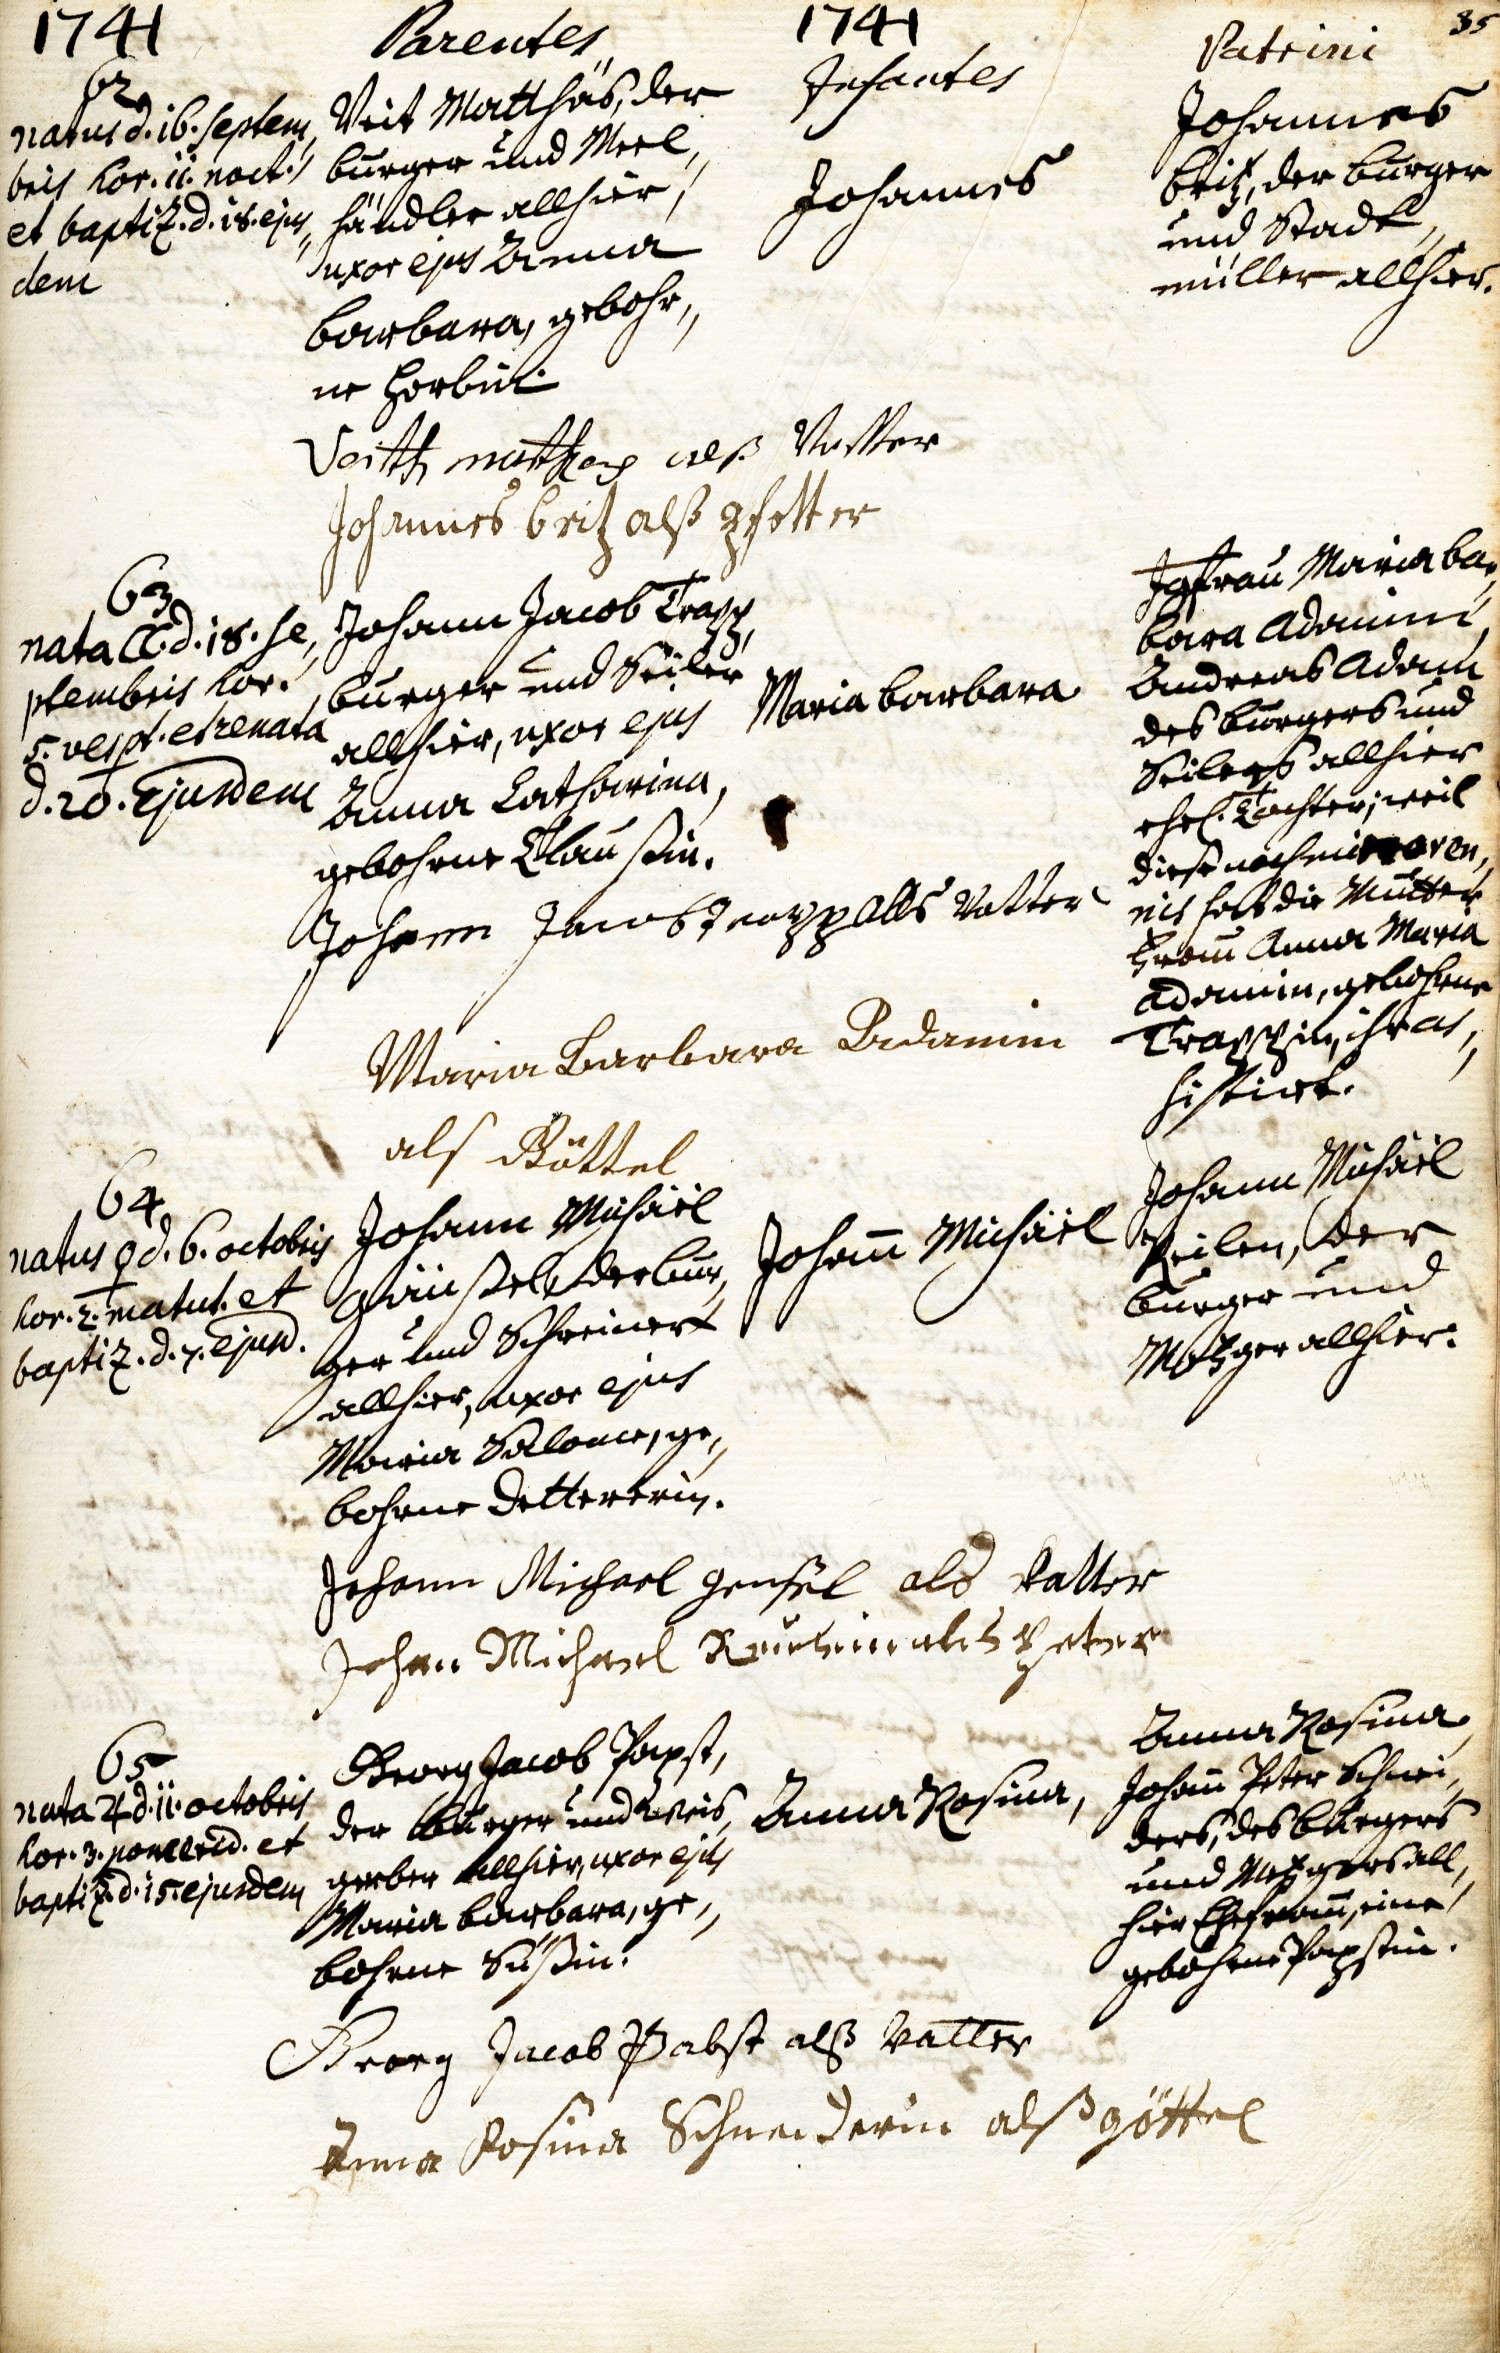 1741
Parentes
1741
Infantes
Patrini
35
62
natus d. 16. Septem„
bris hor. 11. noct.
et baptiz. d. 18. ejus„
dem
Veit Matthäs, der
burger und Meel„
händler allhier,
uxor ejus Anna
barbara, gebohr„
ne Horbin.
Johannes
Johannes
britz, der burger
und Stadt„
müller allhier.
Veith als Vatter
Johannes britz alß pfetter
63
nata ☾ d. 18. Se„
ptembris hor.
5. vesp. et renata
d. 20. Ejusdem
Johann Jacob Trapp,
burger und Seiler
allhier, uxor ejus
Anna Catharina,
gebohrne Claußin.
Maria barbara
Jgfrau Maria bar„
bara Adamin,
Andreas Adam
des burgers und
Seilers allhier
ehel. Tochter; weil
diese noch
hat die Mutter
Frau Anna Maria
Adamin, gebohrne
Trappin, ihr as„
sistirt.
Johann Jacob Trapp alls Vatter
Maria Barbara Adamin
als Göttel
64
natus ♀ d. 6. octobris
hor. 2. matut. et
baptiz. d. 7. Ejusd.
Johann Michäel
Gänßel, der bur„
ger und Schreiner
allhier, uxor ejus
Maria Salome, ge„
bohrne Dettererin.
Johann Michäel
Johann Michäel
der
burger und
Metzger allhier.
Johann Michael Gensel als Vatter
Johan Michael als Peter
65
nata ♃ d. 11. octobris
hor. 3. pomerid. et
baptiz. d. 15. ejusdem
Georg Jacob Papst,
der burger und Weis„
gerber allhier, uxor ejus
Maria barbara, ge„
bohrne Süßin.
Anna Rosina,
Anna Rosina,
Johann Peter Schnei„
ders, des burgers
und Metzgers all„
hier Ehefrau, eine
gebohrne Papstin.
Georg Jacob Pabst alß Vatter
Anna Rosina Schneiderin alß göttel